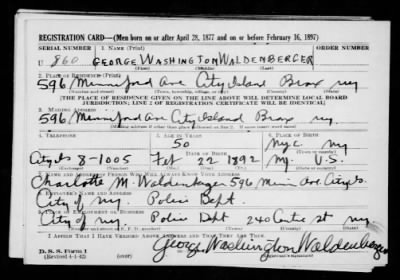 REGISTRATION CARD—(Men born on or after April 28, 1877 and on or before February 16, 1897)
SERIAL NUMBER 1. NAME (Print) ORDER NUMBER
U 860 GEORGE WASHINGTON WALDENBERGER
(First) (Middle) (Last)
2. PLACE OF RESIDENCE (Print)
596 Minneford Ave City Island Bronx ny
(Number and street) (Town, township, village, or city) (County) (State)
[THE PLACE OF RESIDENCE GIVEN ON THE LINE ABOVE WILL DETERMINE LOCAL BOARD
JURISDICTION; LINE 2 OF REGISTRATION CERTIFICATE WILL BE IDENTICAL]
3. MAILING ADDRESS
596 Minneford Ave City Island Bronx ny
[Mailing address if other than place indicated on line 2. If same insert word same]
4. TELEPHONE 5. AGE IN YEARS 6. PLACE OF BIRTH
50 NYC. ny
DATE OF BIRTH
8-1005 Feb 22 1892 Ny. U.S.
7. NAME AND ADDRESS OF PERSON WHO WILL ALWAYS KNOW YOUR ADDRESS
Charlotte M. Waldenberger 596 Minn Ave
8. EMPLOYER'S NAME AND ADDRESS
City of ny. Police Dept.
9. PLACE OF EMPLOYMENT OR BUSINESS
City of ny. Police Dept 240 Centre st ny
I AFFIRM THAT I HAVE VERIFIED ABOVE ANSWERS AND THAT THEY ARE TRUE.
D. S. S. Form 1
(Revised 4-1-42)
George Washington Waldenberger